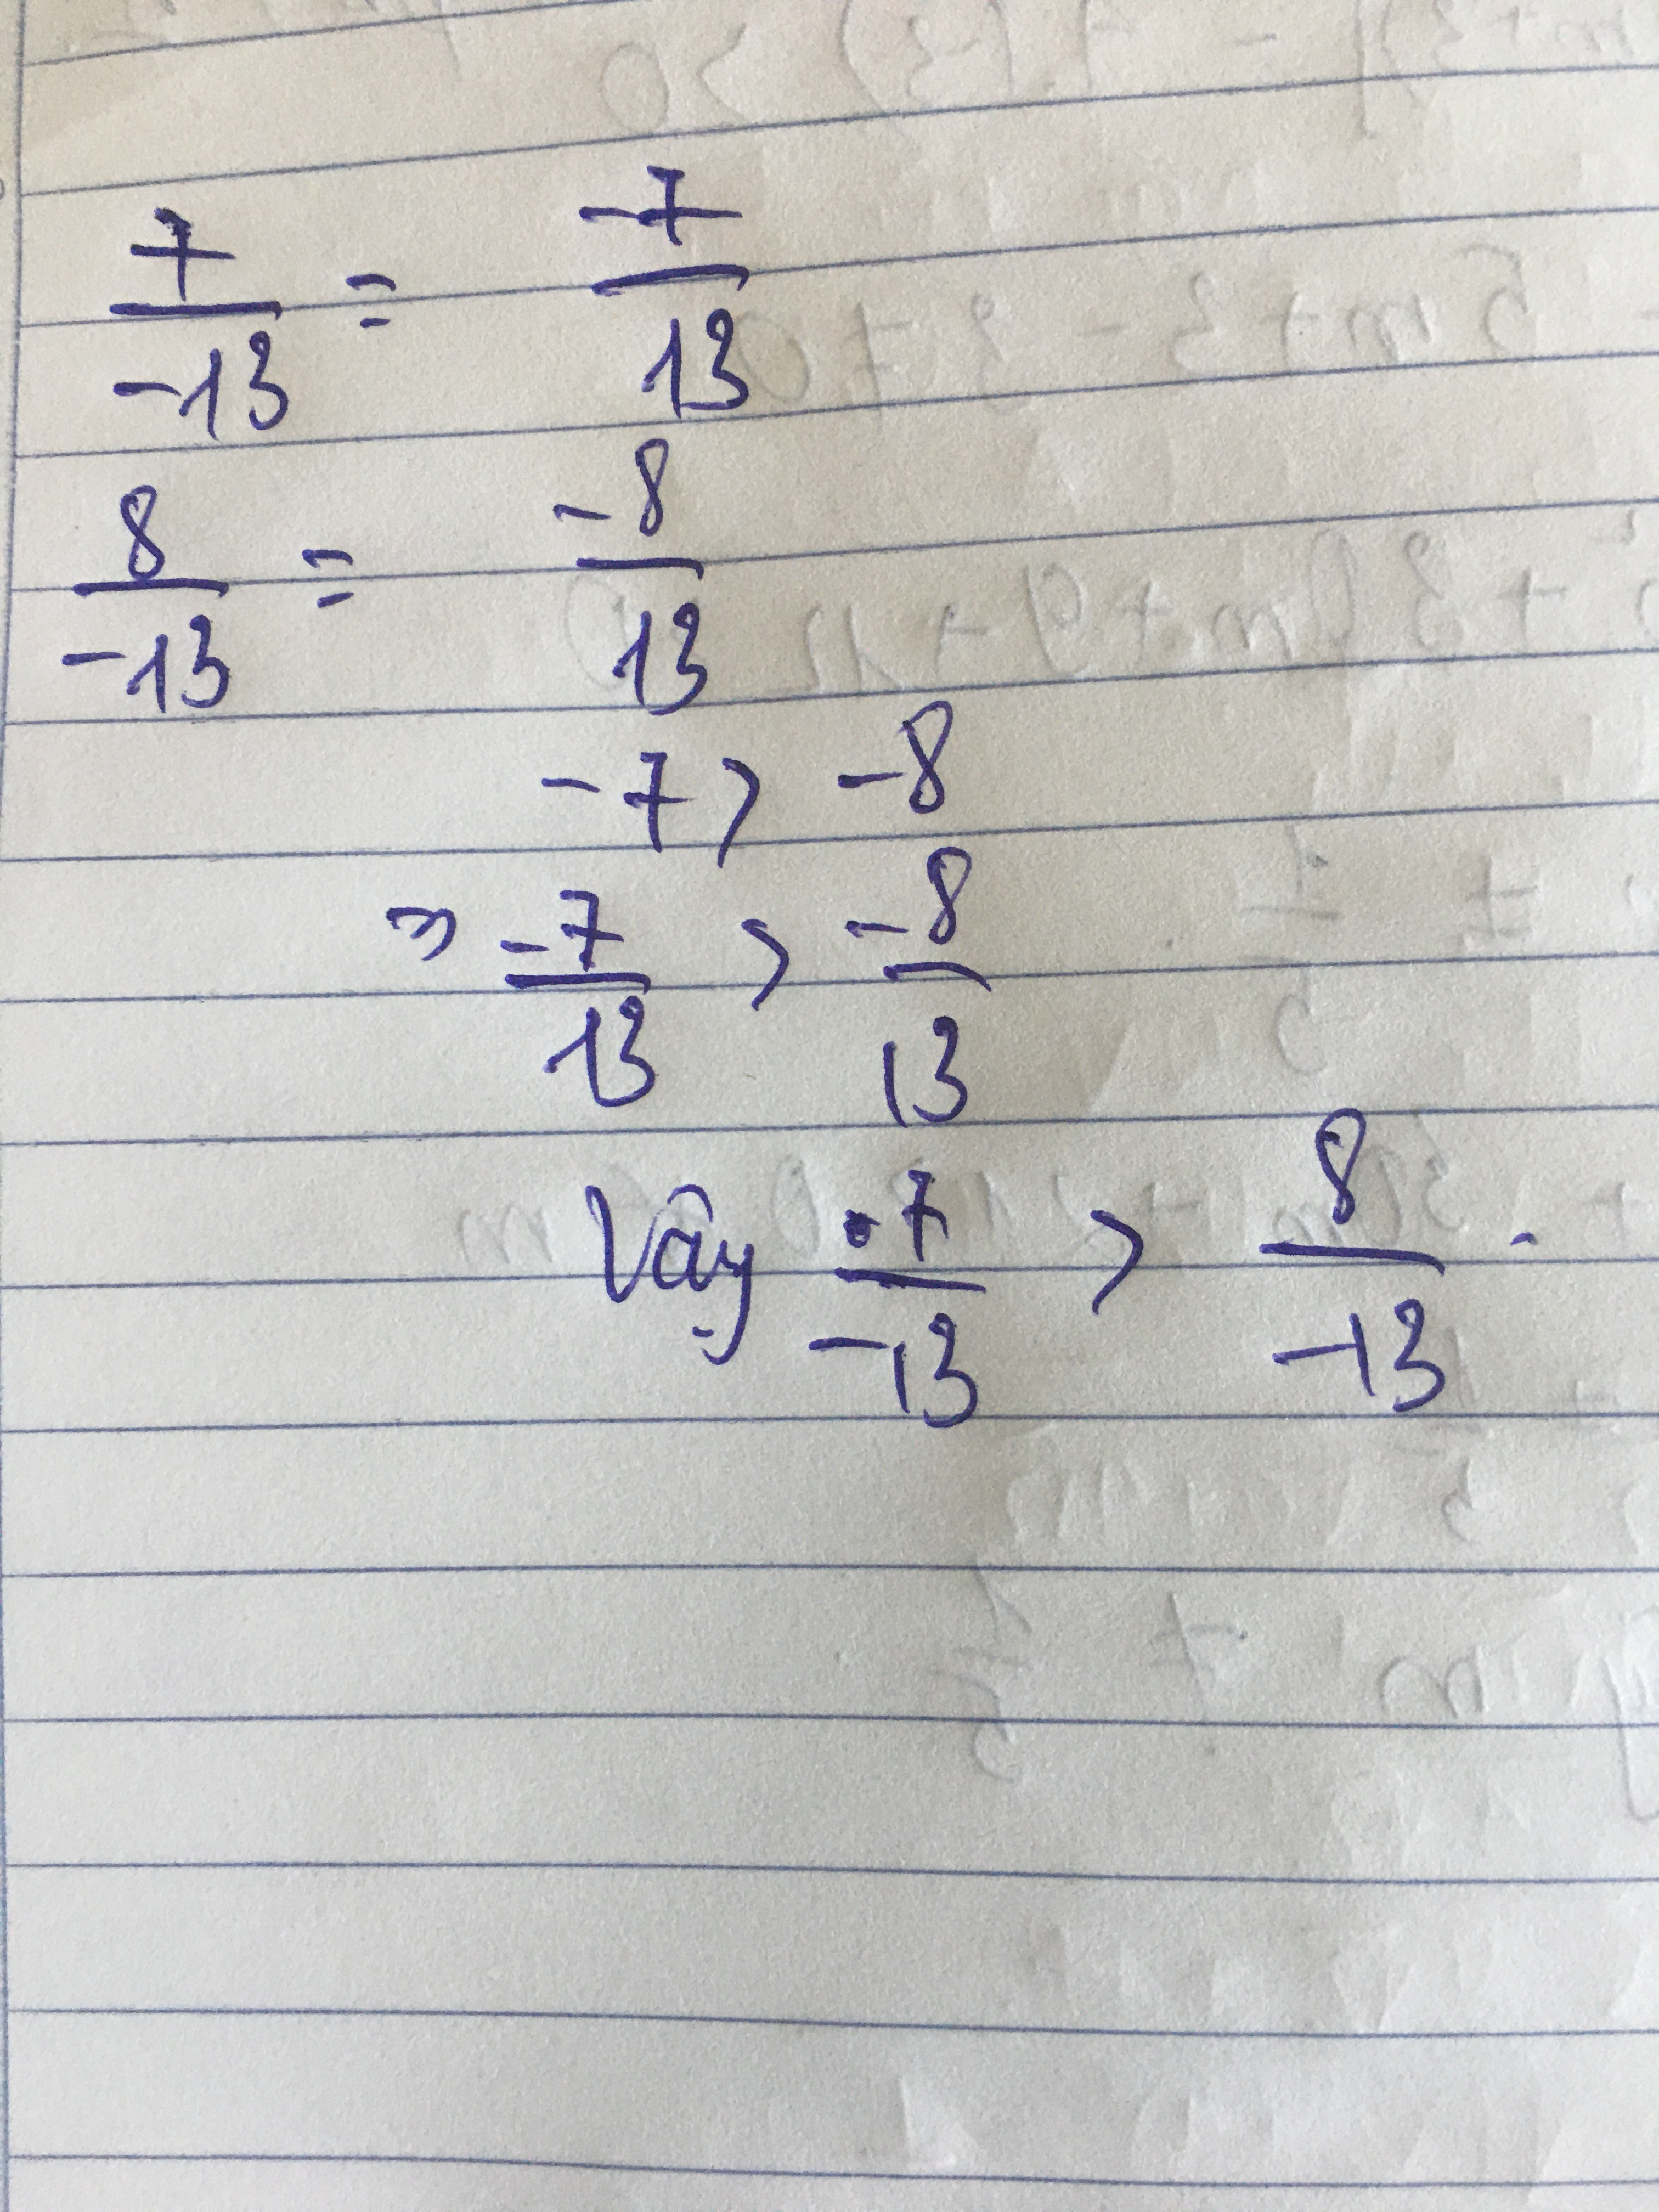 7/-13 = -7/13
8/-13 = -8/13
-7 > -8
=> -7/13 > -8/13
Vậy 7/-13 > 8/-13.